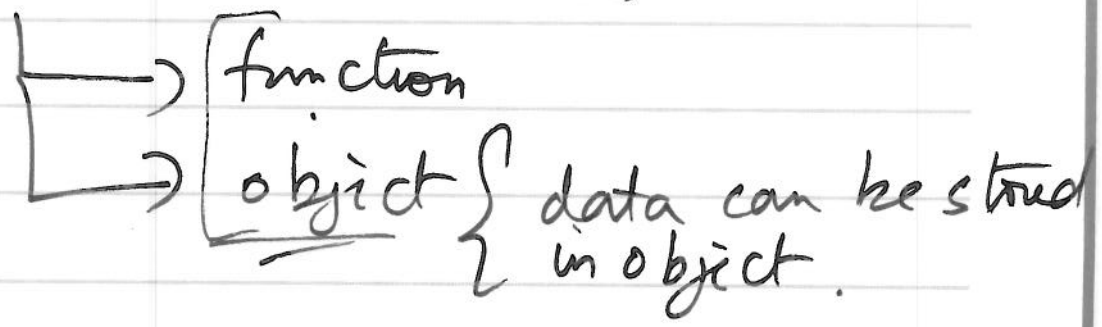 function
object { data can be stored
in object.